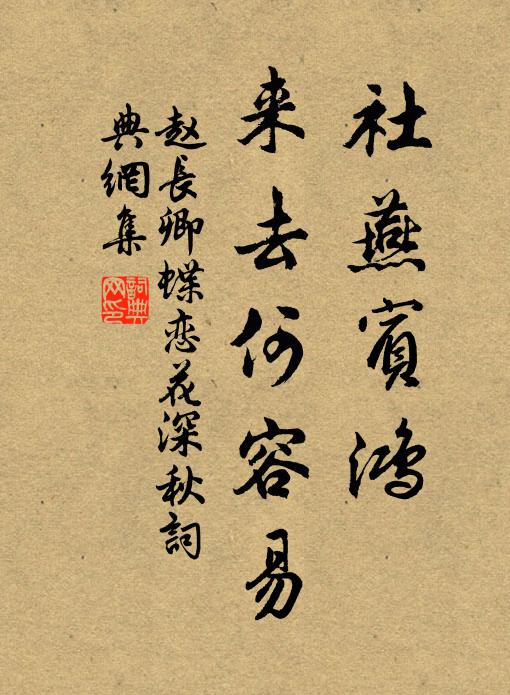 社燕賓鴻
来去何容易
赵長卿蝶恋花深秋詞
典網集
詞典
网印